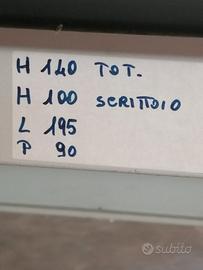 H 120 TOT.
H 100 SCRITTOIO
L 195
P 90
subito